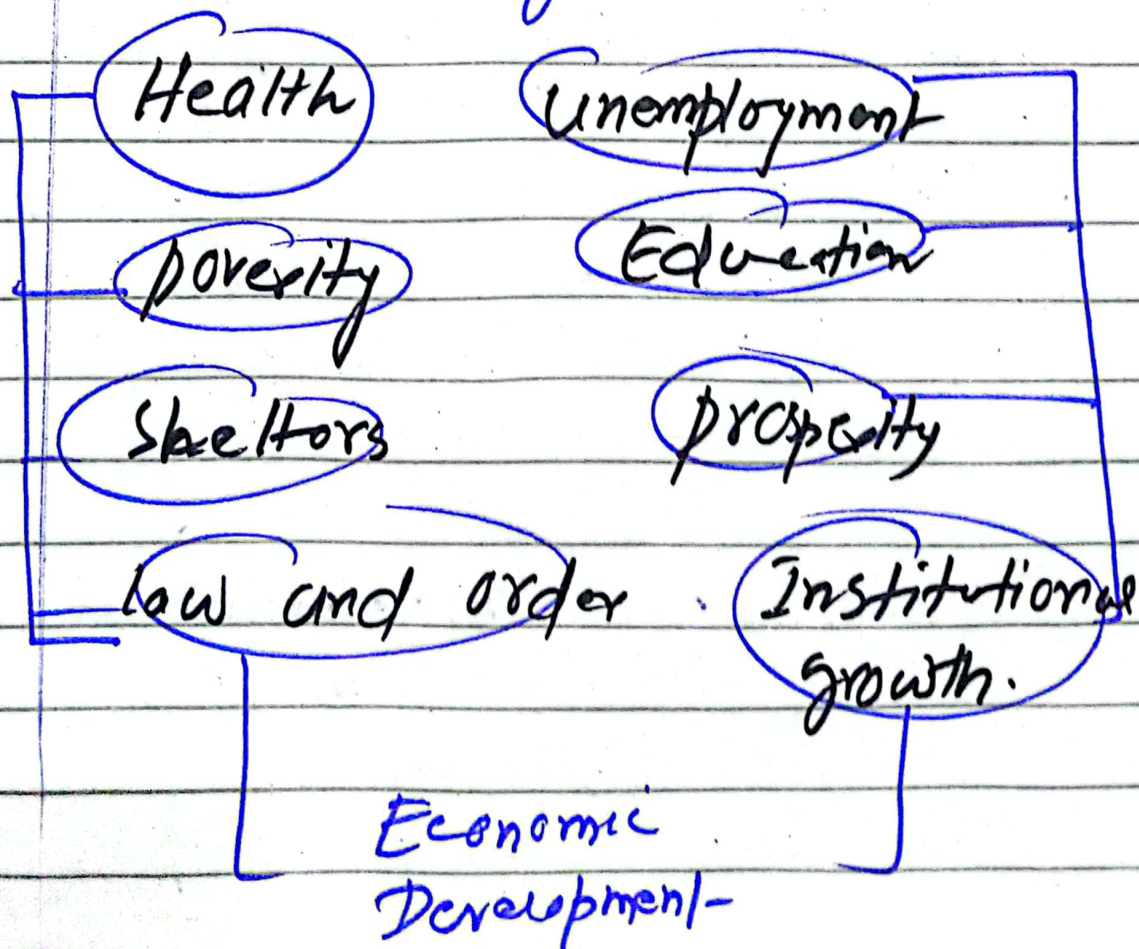 Health
Unemployment
poverity
Education
Sheltors
prosperity
law and order
Institutional
growth.
Economic
Development